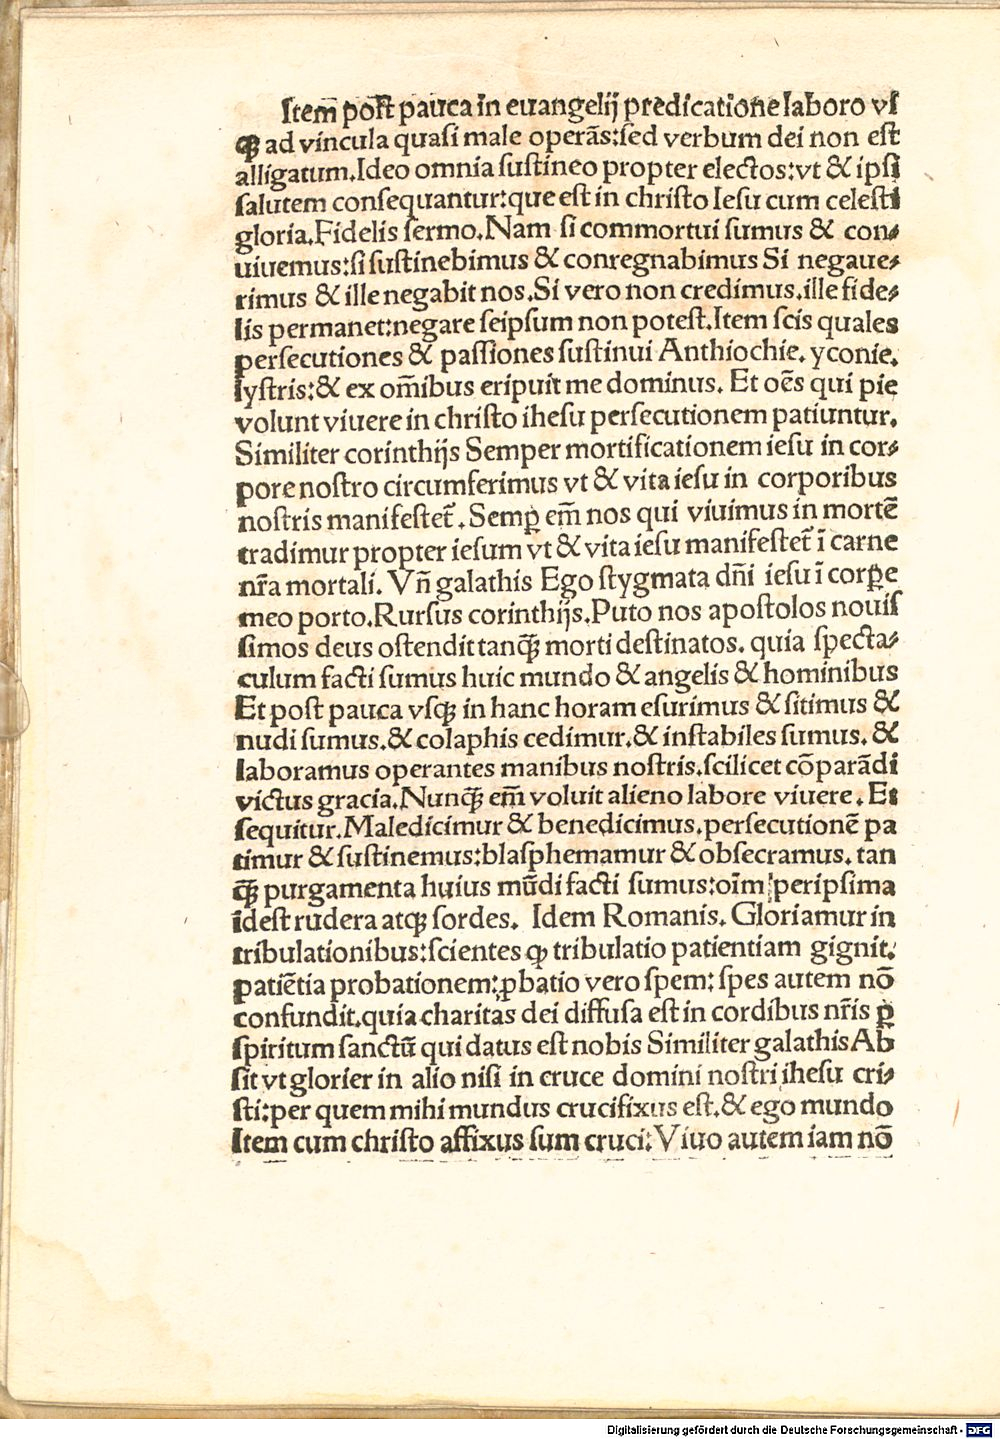 Item̄ poſt pauca in euangelij predicatione laboro vſ
qꝫ ad vincula quasi male operās:ſed verbum dei non eſt
alligatum.Ideo omnia ſuſtineo propter electos:vt & ipſi
ſalutem conſequantur:que eſt in chriſto Ieſu cum celeſti
gloria.Fidelis ſermo.Nam ſi commortui ſumus & con⸗
uiuemus:ſi ſuſtinebimus & conregnabimus Si negaue⸗
rimus & ille negabit nos.Si vero non credimus.ille fide⸗
lis permanet:negare ſeipſum non poteſt.Item ſcis quales
perſecutiones & paſſiones ſuſtinui Anthiochie. yconie.
lyſtris:& ex om̄ibus eripuit me dominus. Et oēs qui pie
volunt viuere in chriſto iheſu perſecutionem patiuntur.
Similiter corinthijs Semper mortificationem ieſu in cor⸗
pore noſtro circumferimus vt & vita ieſu in corporibus
noſtris manifeſtet̄. Semꝑ em̄ nos qui viuimus in mortē
tradimur propter ieſum vt & vita ieſu manifeſtet̄ ī carne
nr̄a mortali. Vn̄ galathis Ego ſtygmata dn̄i ieſu ī corꝑe
meo porto.Rurſus corinthijs.Puto nos apoſtolos nouiſ
ſimos deus oſtendit tanqꝫ̄ morti deſtinatos. quia ſpecta⸗
culum facti ſumus huic mundo & angelis & hominibus
Et poſt pauca vſqꝫ in hanc horam eſurimus & ſitimus &
nudi ſumus.& colaphis cedimur.& inſtabiles ſumus. &
laboramus operantes manibus noſtris.ſcilicet cōparādi
victus gracia.Nunqꝫ̄ em̄ voluit alieno labore viuere. Et
ſequitur.Maledicimur & benedicimus.perſecutionē pa
timur & ſuſtinemus:blaſphemamur & obſecramus. tan
qꝫ̄ purgamenta huius mūdi facti ſumus:oīm peripſima
idest rudera atqꝫ ſordes. Idem Romanis. Gloriamur in
tribulationibus:ſcientes ꝙ tribulatio patientiam gignit.
patiētia probationem:ꝓbatio vero ſpem: ſpes autem nō
confundit.quia charitas dei diffuſa eſt in cordibus nr̄is ꝑ
ſpiritum ſanctū qui datus eſt nobis Similiter galathis Ab
ſit vt glorier in alio niſi in cruce domini noſtri iheſu cri⸗
ſti:per quem mihi mundus crucifixus eſt.& ego mundo
Item cum chriſto affixus ſum cruci: Viuo autem iam nō
Digitalisierung gefördert durch die Deutsche Forschungsgemeinschaft - DFG